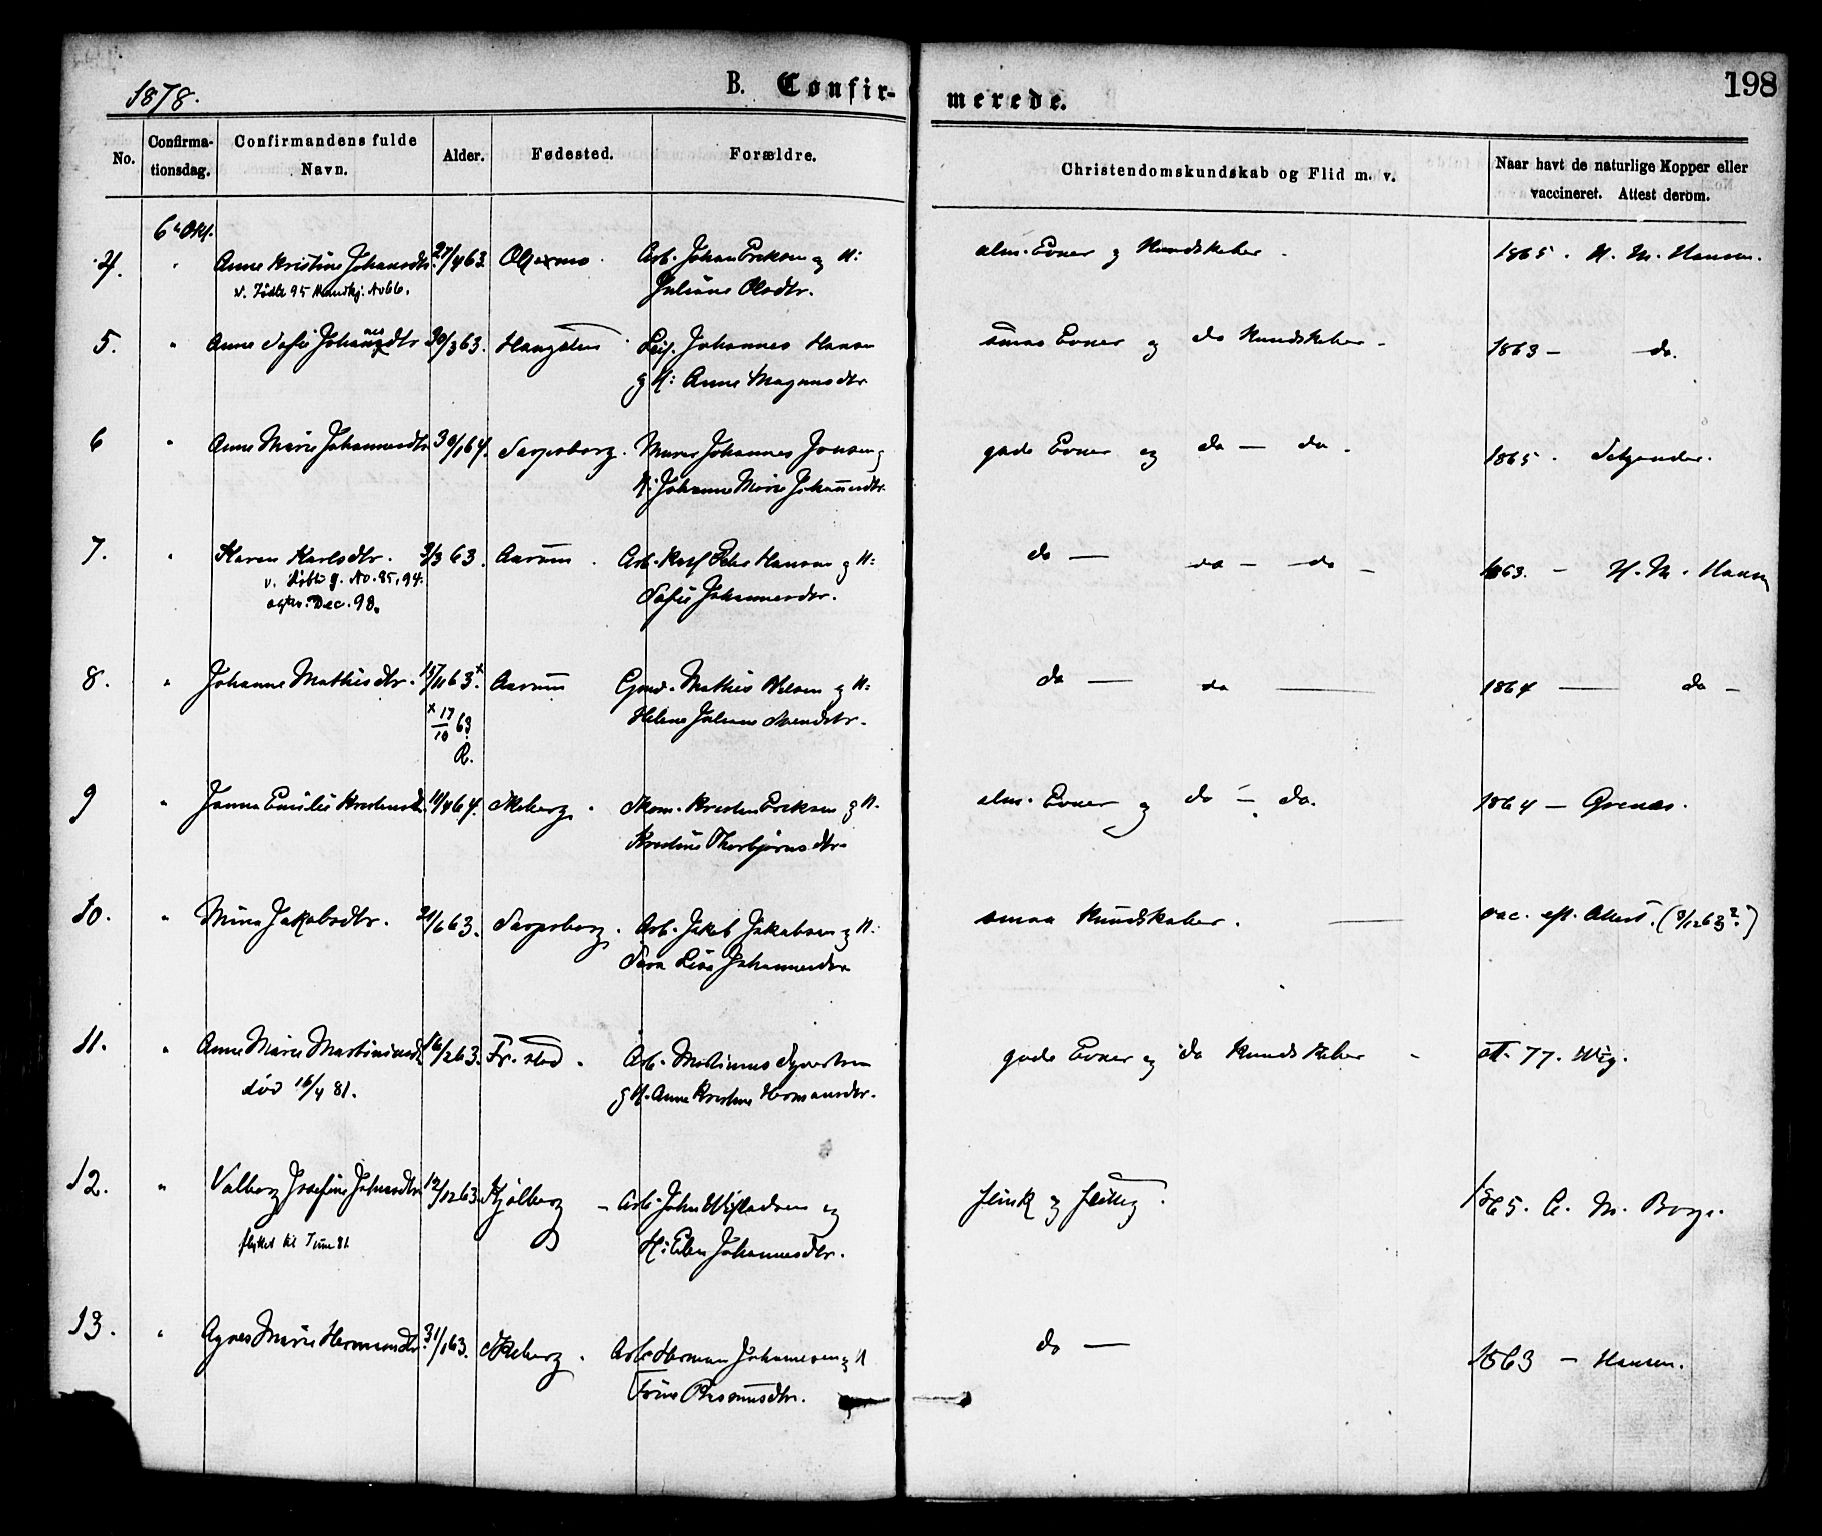 1878.
B. Confir-
merede.
198
No.
Confirma-
tionsdag.
Confirmandens fulde
Navn.
Alder.
Fødested.
Forældre.
Christendomskundskab og Flid m. v.
Naar havt de naturlige Kopper eller
vaccineret. Attest derom.
6 Okt.
4. " Anne Kristine Johansdtr. 27/4 63. Arb. Johan Eriksen og H: alm. Evner og Kundskaber. 1865. H. M. Hansen.
Juliane Olsdtr.
5. " Anne Sofie Johannesdtr 30/3 63. Haugsten Lejl. Johannes Hansen smaa Evner og do Kundskaber - 1863 - do.
g H: Anne Magnusdtr
6 " Anne Marie Johannesdtr 30/1 64. Sarpsborg. Murer Johannes Jonsen g gode Evner og do - do. 1865.
H: Johanne Marie Johannesdtr.
7. " Karen Karlsdtr. 3/3 63. Aarum. Arb. Karl Peter Hansen g H: do - do - do - 1863. - H. M. Hansen
Sofie Johannesdtr.
Dec. 98.
8. " Johanne Mathisdtr. 17/11 63. x Aarum Gmd. Mathis Nilsen g H: do - do - 1864 - do -
x 17/10 63 Helene Juliane Svendsdtr.
R.
9 " Janna Emilie Kristensdtr. 11/4 64. Skeberg. Skom. Kristen Eriksen g H. alm. Evner og do - do. 1864 - Grenæs.
Kristine Thorbjørnsdtr.
10. " Mina Jakobsdtr. 21/6 63. Sarpsborg. Arb. Jakob Jakobsen g H: smaa Kundskaber. - vac. eft. Attest. (9/12 63?)
Sara Lise Johannesdtr.
11. " Anne Marie Martiniusdtr 16/2 63. Fr.stad. Arb. Martinius Syvertsen gode Evner og do Kundskaber - att. 77. Wiig.
død 16/4 81. g H. Anne Kristine Hermansdtr.
12. " Valborg Josefine Johnsdtr 12/12 63. Kjølberg - Arb. John og flink og flittig. 1865. C. M. Borge.
flyttet til Tune 81 H: Ellen Johannesdtr.
13. " Agnes Marie Hermansdtr. 31/1 63. Skeberg. Arb. Herman Johannesen g H do - 1863 - Hansen.
Trine Rasmusdtr.